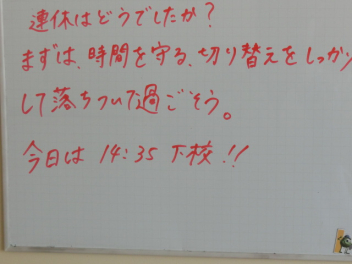 連休はどうでしたか?
まずは、時間を守る、切り替えをしっかり
して落ちついて過ごそう。
今日は 14:35 下校!!